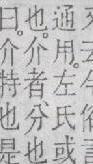 通用。左氏或
也。介者分也
曰。介特也是